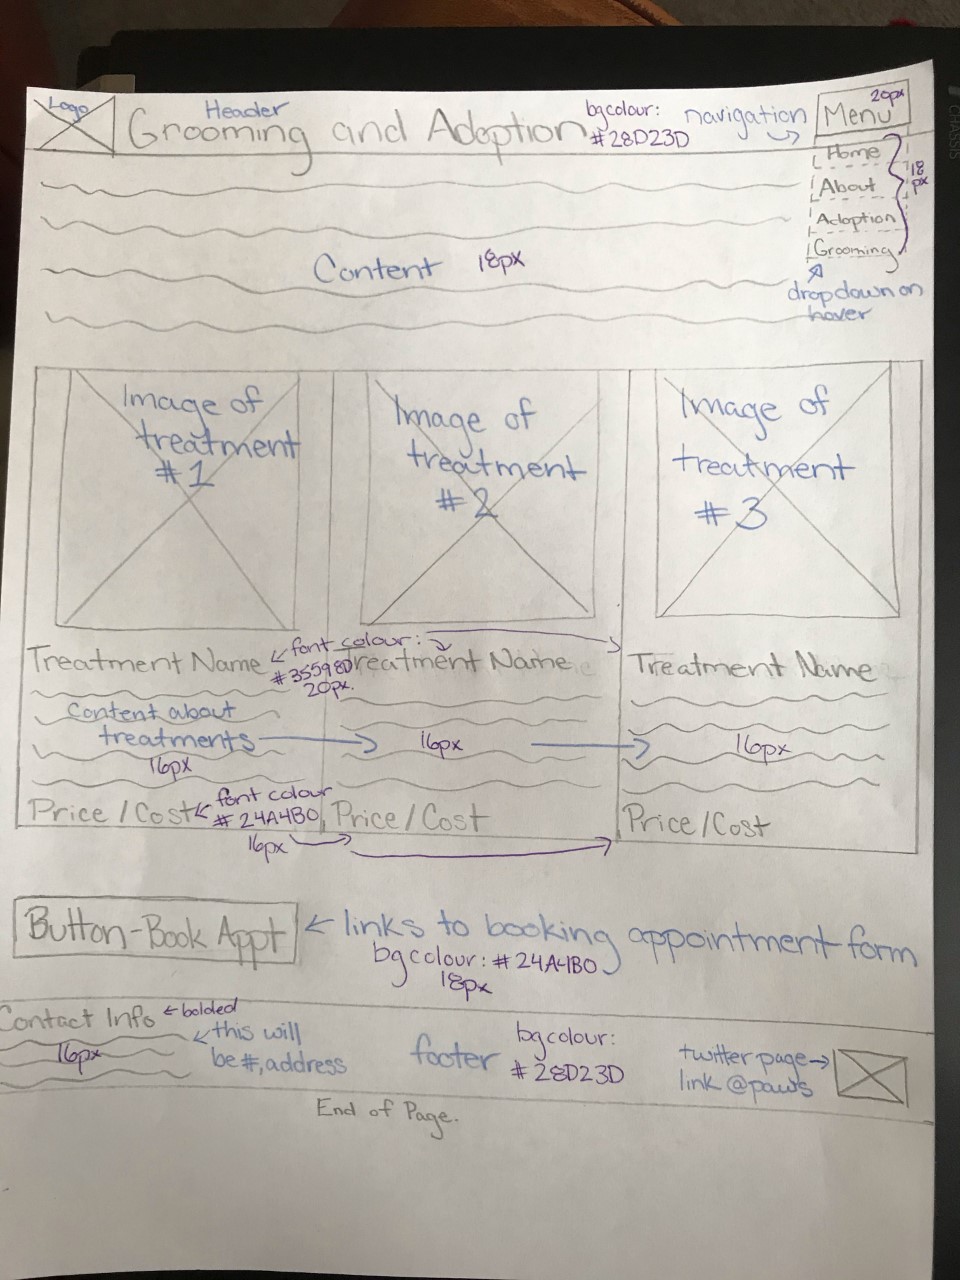 Logo
Header
Grooming and Adoption
bgcolour:
#28D23D
navigation
20px
Menu
Home
About
Adoption
Grooming
18
px
dropdown on
hover
Content 18px
Image of
treatment
#1
Image of
treatment
#2
Image of
treatment
#3
Treatment Name
font colour:
#35598D
20px.
Treatment Name
Treatment Name
Content about
treatments
16px
16px
16px
Price/Cost
font colour
#24A4B0
16px
Price/Cost
Price/Cost
Button-Book Appt
links to booking appointment form
bgcolour: #24A4B0
18px
Contact Info
bolded
16px
this will
be #, address
footer
bgcolour:
#28D23D
twitter page
link @paws
End of Page.